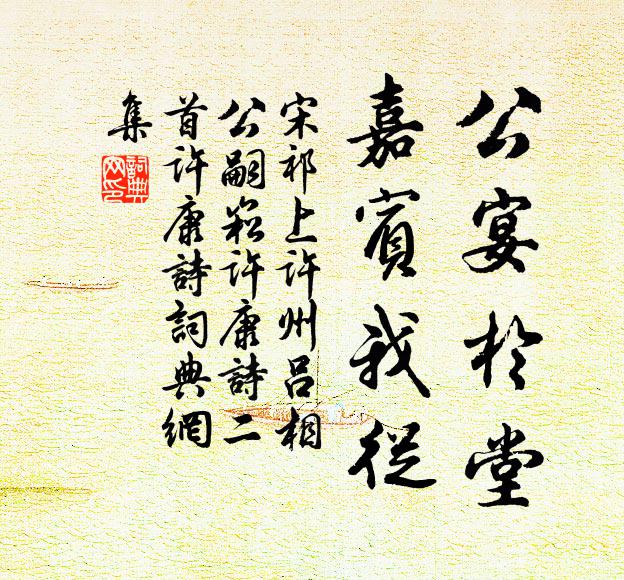 公宴於堂
嘉賓我從
宋祁上許州呂相
公嗣崧許康詩二
首許康詩詞典網
集
詞典網印